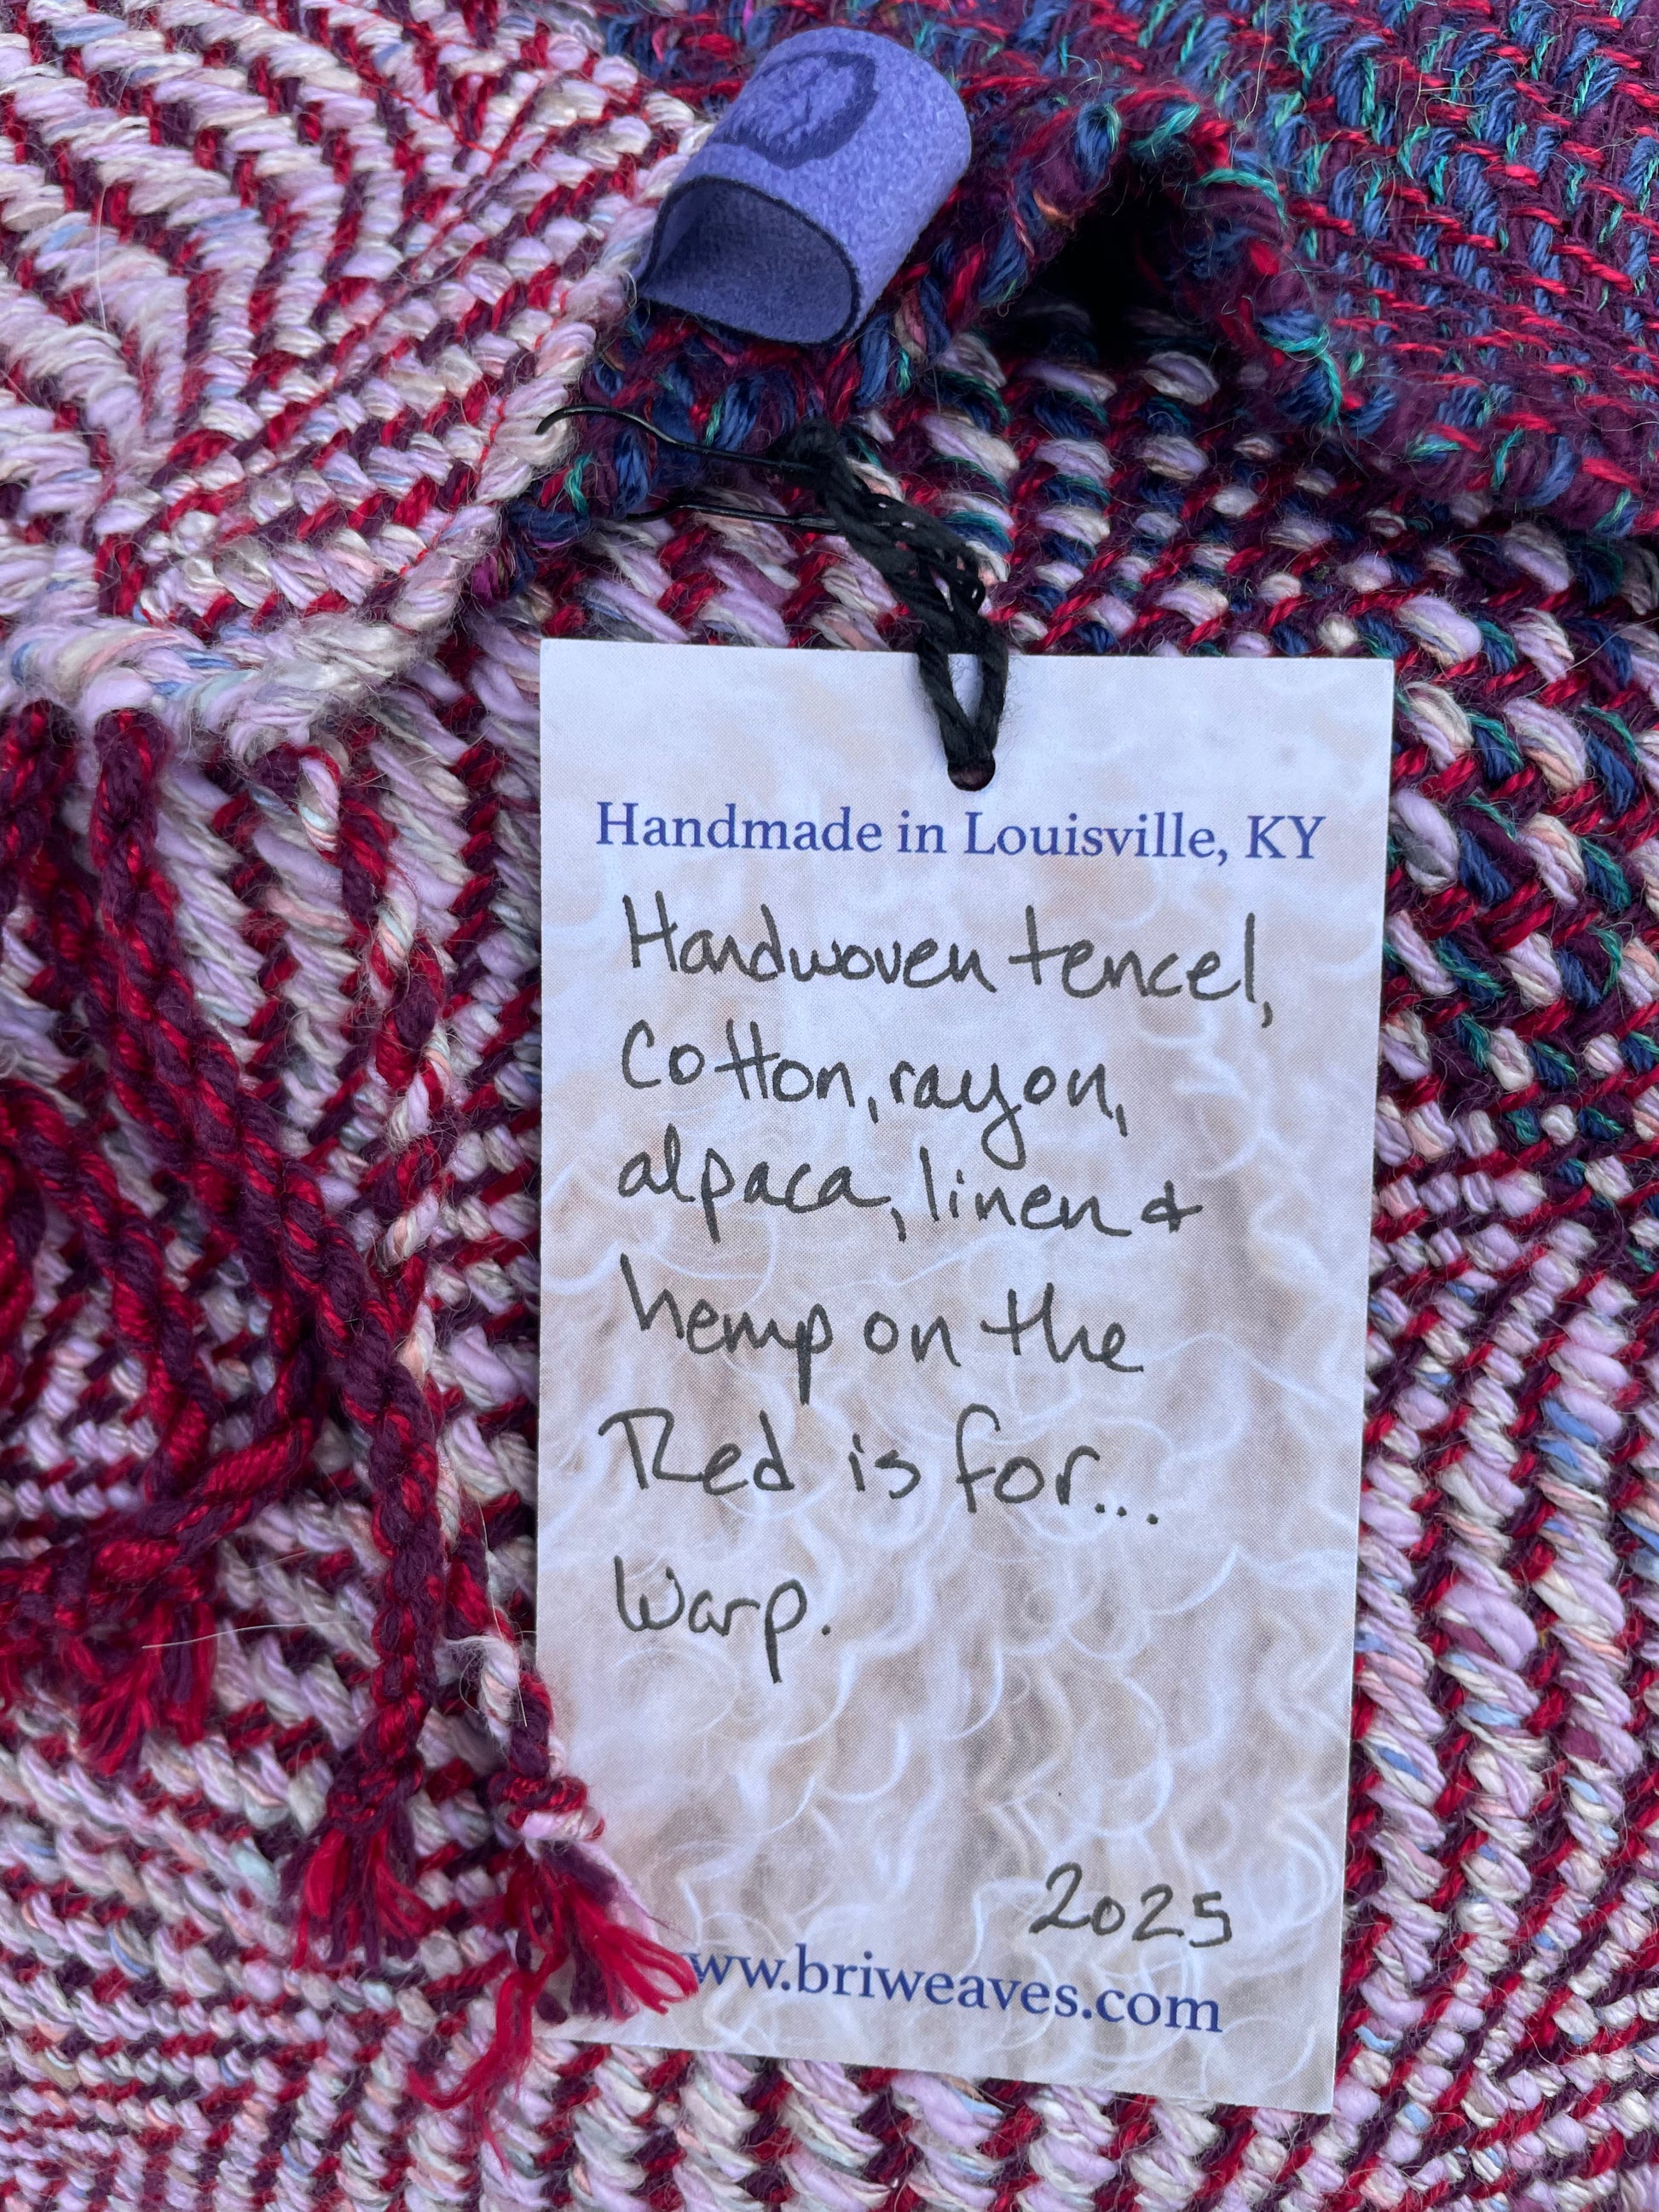 Handmade in Louisville, KY
Handwoven tencel,
Cotton, rayon,
alpaca, linen &
hemp on the
Red is for...
Warp.
2025
ww.briweaves.com